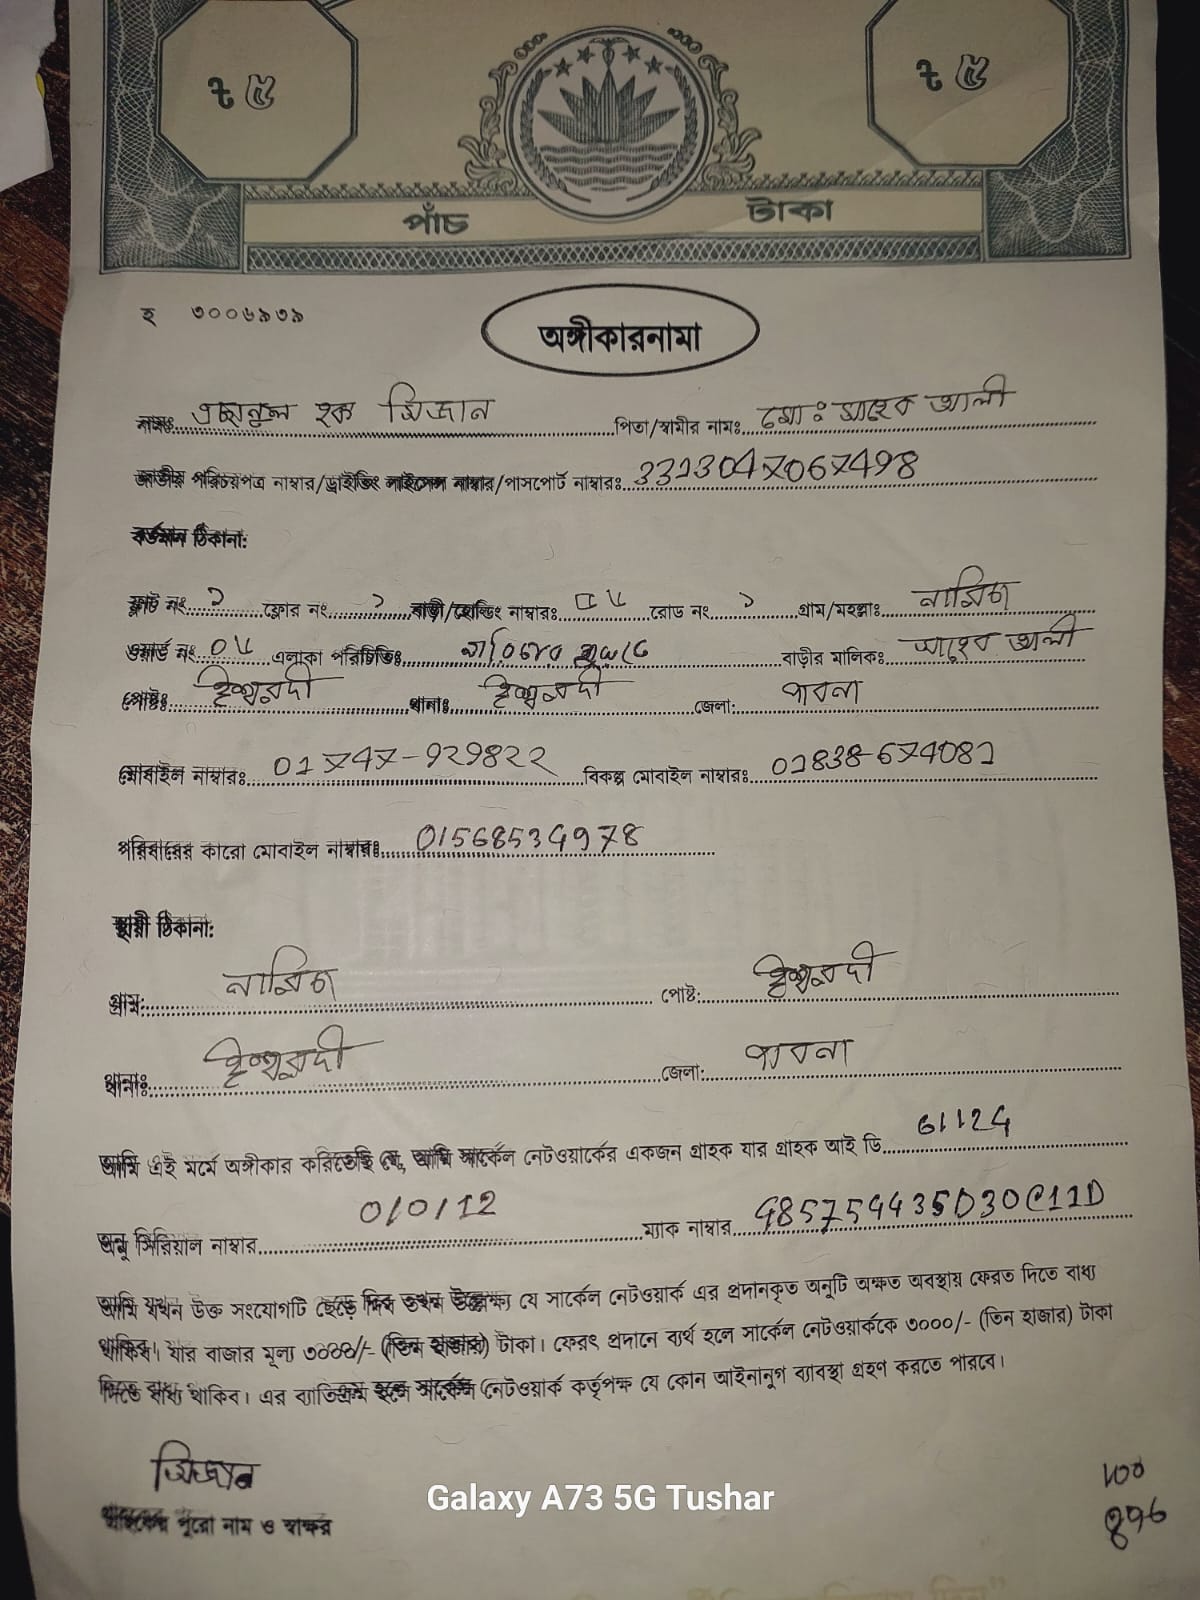 ৳ ৫ ৳ ৫
পাঁচ টাকা
হ ৩০০৬৯৩৯
অঙ্গীকারনামা
নামঃ এছানুল হক মিজান পিতা/স্বামীর নামঃ মোঃ সাহেব আলী
জাতীয় পরিচয়পত্র নাম্বার/ড্রাইভিং লাইসেন্স নাম্বার/পাসপোর্ট নাম্বারঃ 3313047067498
বর্তমান ঠিকানা:
ফ্লাট নং ১ ফ্লোর নং ১ বাড়ী/হোল্ডিং নাম্বারঃ রোড নং ১ গ্রাম/মহল্লাঃ
ওয়ার্ড নং এলাকা পরিচিতিঃ বাড়ীর মালিকঃ সাহেব আলী
পোষ্টঃ ঈশ্বরদী থানাঃ ঈশ্বরদী জেলা: পাবনা
মোবাইল নাম্বারঃ 01747-929822 বিকল্প মোবাইল নাম্বারঃ 01838-674081
পরিবারের কারো মোবাইল নাম্বারঃ 01568534978
স্থায়ী ঠিকানা:
গ্রাম: পোষ্ট: ঈশ্বরদী
থানাঃ ঈশ্বরদী জেলা: পাবনা
আমি এই মর্মে অঙ্গীকার করিতেছি যে, আমি সার্কেল নেটওয়ার্কের একজন গ্রাহক যার গ্রাহক আই ডি 61124
অনু সিরিয়াল নাম্বার 0/0/12 ম্যাক নাম্বার 485754435D30C11D
আমি যখন উক্ত সংযোগটি ছেড়ে দিব তখন উল্লেক্ষ্য যে সার্কেল নেটওয়ার্ক এর প্রদানকৃত অনুটি অক্ষত অবস্থায় ফেরত দিতে বাধ্য
থাকিব। যার বাজার মূল্য ৩০০০/- (তিন হাজার) টাকা। ফেরৎ প্রদানে ব্যর্থ হলে সার্কেল নেটওয়ার্ককে ৩০০০/- (তিন হাজার) টাকা
দিতে বাধ্য থাকিব। এর ব্যাতিক্রম হলে সার্কেল নেটওয়ার্ক কর্তৃপক্ষ যে কোন আইনানুগ ব্যাবস্থা গ্রহণ করতে পারবে।
মিজান
গ্রাহকের পুরো নাম ও স্বাক্ষর
Galaxy A73 5G Tushar